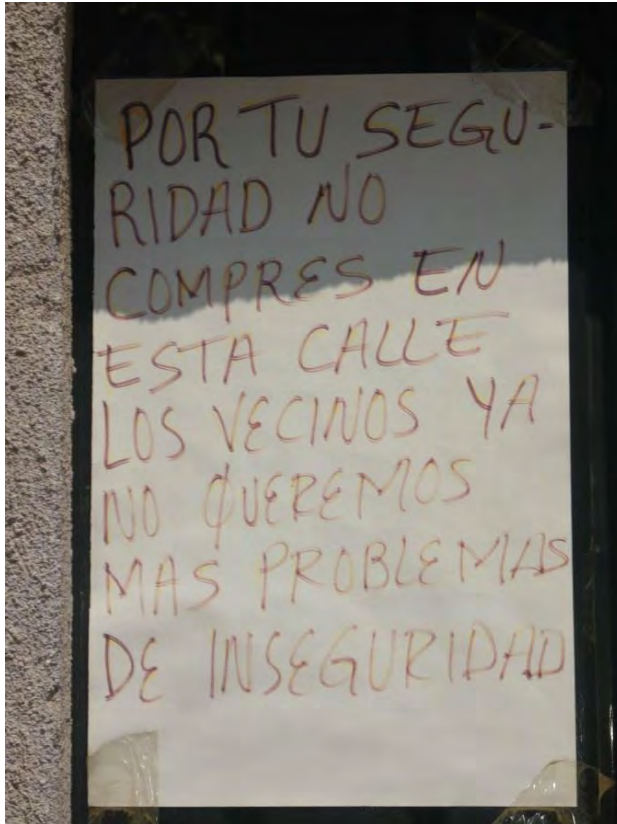 POR TU SEGU-
RIDAD NO
COMPRES EN
ESTA CALLE
LOS VECINOS YA
NO QUEREMOS
MAS PROBLEMAS
DE INSEGURIDAD